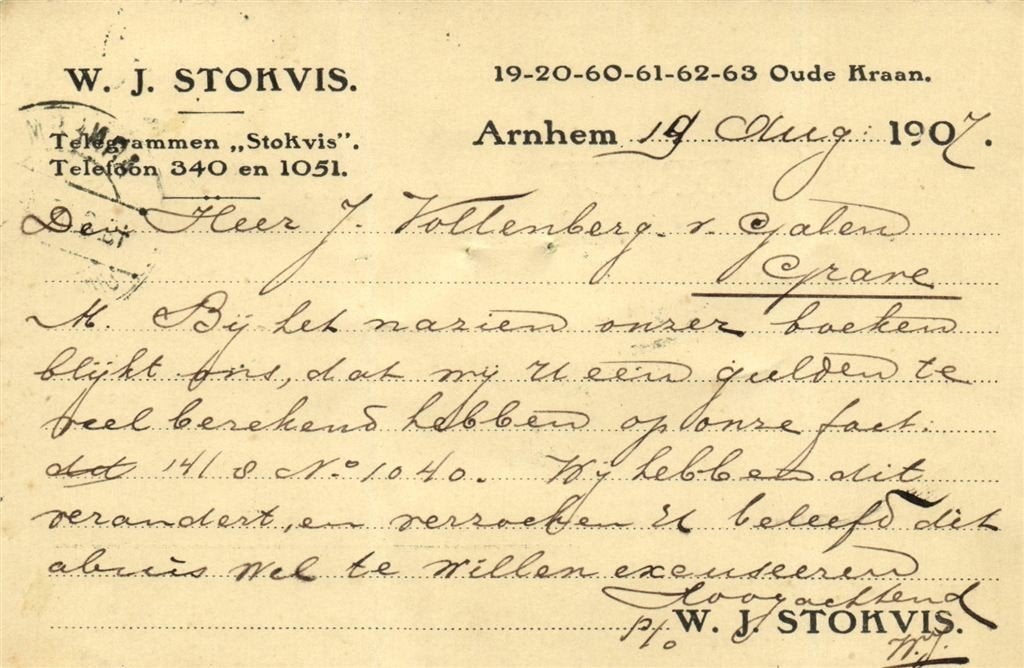 W. J. STOKVIS.
19-20-60-61-62-63 Oude Kraan.
Telegrammen „Stokvis”.
Telefoon 340 en 1051.
Arnhem 19 Aug: 1907.
Den Heer J. Vollenberg v. Galen
Grave
M. Bij het nazien onzer boeken
blijkt ons, dat wij U een gulden te
veel berekend hebben op onze fact:
dd 14/8 No 1040. Wij hebben dit
verandert, en verzoeken U beleefd dit
abuis wel te willen excuseeren
Hoogachtend
p/o W. J. STOKVIS.